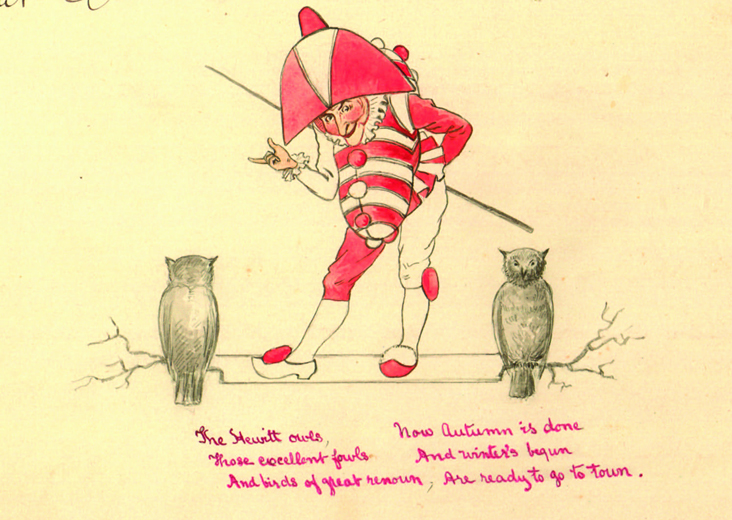 The Hewitt owls,
Those excellent fowls
And birds of great renown,
Now Autumn is done
And winter's begun
Are ready to go to town.